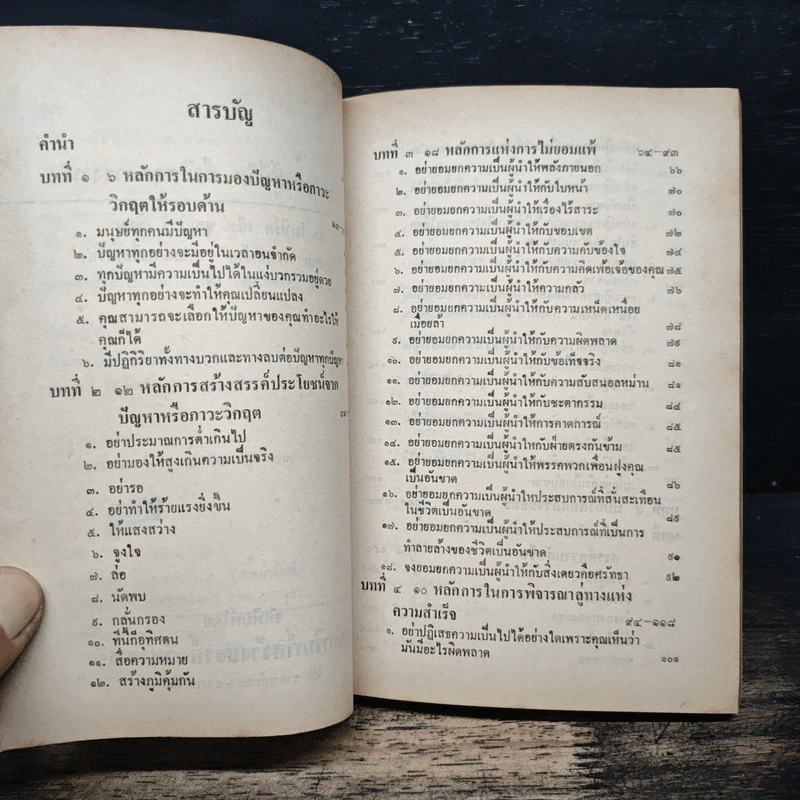 สารบัญ
คำนำ
บทที่ ๑ ๖ หลักการในการมองปัญหาหรือภาวะ
วิกฤตให้รอบด้าน
๑. มนุษย์ทุกคนมีปัญหา
๒. ปัญหาทุกอย่างจะมีอยู่ในเวลาอันจำกัด
๓. ทุกปัญหามีความเป็นไปได้ในแง่บวกรวมอยู่ด้วย
๔. ปัญหาทุกอย่างจะทำให้คุณเปลี่ยนแปลง
๕. คุณสามารถจะเลือกให้ปัญหาของคุณทำอะไรให้
คุณก็ได้
๖. มีปฏิกิริยาทั้งทางบวกและทางลบต่อปัญหาทุกปัญหา
บทที่ ๒ ๑๒ หลักการสร้างสรรค์ประโยชน์จาก
ปัญหาหรือภาวะวิกฤต
๑. อย่าประมาณการต่ำเกินไป
๒. อย่ามองให้สูงเกินความเป็นจริง
๓. อย่ารอ
๔. อย่าทำให้ร้ายแรงยิ่งขึ้น
๕. ให้แสงสว่าง
๖. จูงใจ
๗. ล่อ
๘. นัดพบ
๙. กลั่นกรอง
๑๐. ที่นี้ก็อุทิศตน
๑๑. สื่อความหมาย
๑๒. สร้างภูมิคุ้มกัน
บทที่ ๓ ๑๘ หลักการแห่งการไม่ยอมแพ้ ๖๔-๙๓
๑. อย่ายอมยกความเป็นผู้นำให้พลังภายนอก ๖๖
๒. อย่ายอมยกความเป็นผู้นำให้กับใบหน้า ๗๐
๓. อย่ายอมยกความเป็นผู้นำให้เรื่องไร้สาระ ๗๐
๔. อย่ายอมยกความเป็นผู้นำให้กับขอบเขต ๗๒
๕. อย่ายอมยกความเป็นผู้นำให้กับความคับข้องใจ ๗๔
๖. อย่ายอมยกความเป็นผู้นำให้กับความคิดเพ้อเจ้อของคุณ ๗๕
๗. อย่ายอมยกความเป็นผู้นำให้ความกลัว ๗๖
๘. อย่ายอมยกความเป็นผู้นำให้กับความเหน็ดเหนื่อย
เมื่อยล้า ๗๘
๙. อย่ายอมยกความเป็นผู้นำให้กับความผิดพลาด ๗๙
๑๐. อย่ายอมยกความเป็นผู้นำให้กับข้อเท็จจริง ๘๑
๑๑. อย่ายอมยกความเป็นผู้นำให้กับความสับสนอลหม่าน ๘๑
๑๒. อย่ายอมยกความเป็นผู้นำให้กับชะตากรรม ๘๔
๑๓. อย่ายอมยกความเป็นผู้นำให้การคาดการณ์ ๘๕
๑๔. อย่ายอมยกความเป็นผู้นำให้กับฝ่ายตรงกันข้าม ๘๕
๑๕. อย่ายอมยกความเป็นผู้นำให้พรรคพวกเพื่อนฝูงคุณ
เป็นอันขาด ๘๖
๑๖. อย่ายอมยกความเป็นผู้นำให้ประสบการณ์ที่สั่นสะเทือน
ในชีวิตเป็นอันขาด ๘๙
๑๗. อย่ายอมยกความเป็นผู้นำให้ประสบการณ์ที่เป็นการ
ทำลายล้างของชีวิตเป็นอันขาด ๙๑
๑๘. จงยอมยกความเป็นผู้นำให้กับสิ่งเดียวคือศรัทธา ๙๒
บทที่ ๔ ๑๐ หลักการในการพิจารณาลู่ทางแห่ง
ความสำเร็จ ๙๔-๑๑๘
๑. อย่าปฏิเสธความเป็นไปได้อย่างใดเพราะคุณเห็นว่า
มันมีอะไรผิดพลาด ๑๐๑